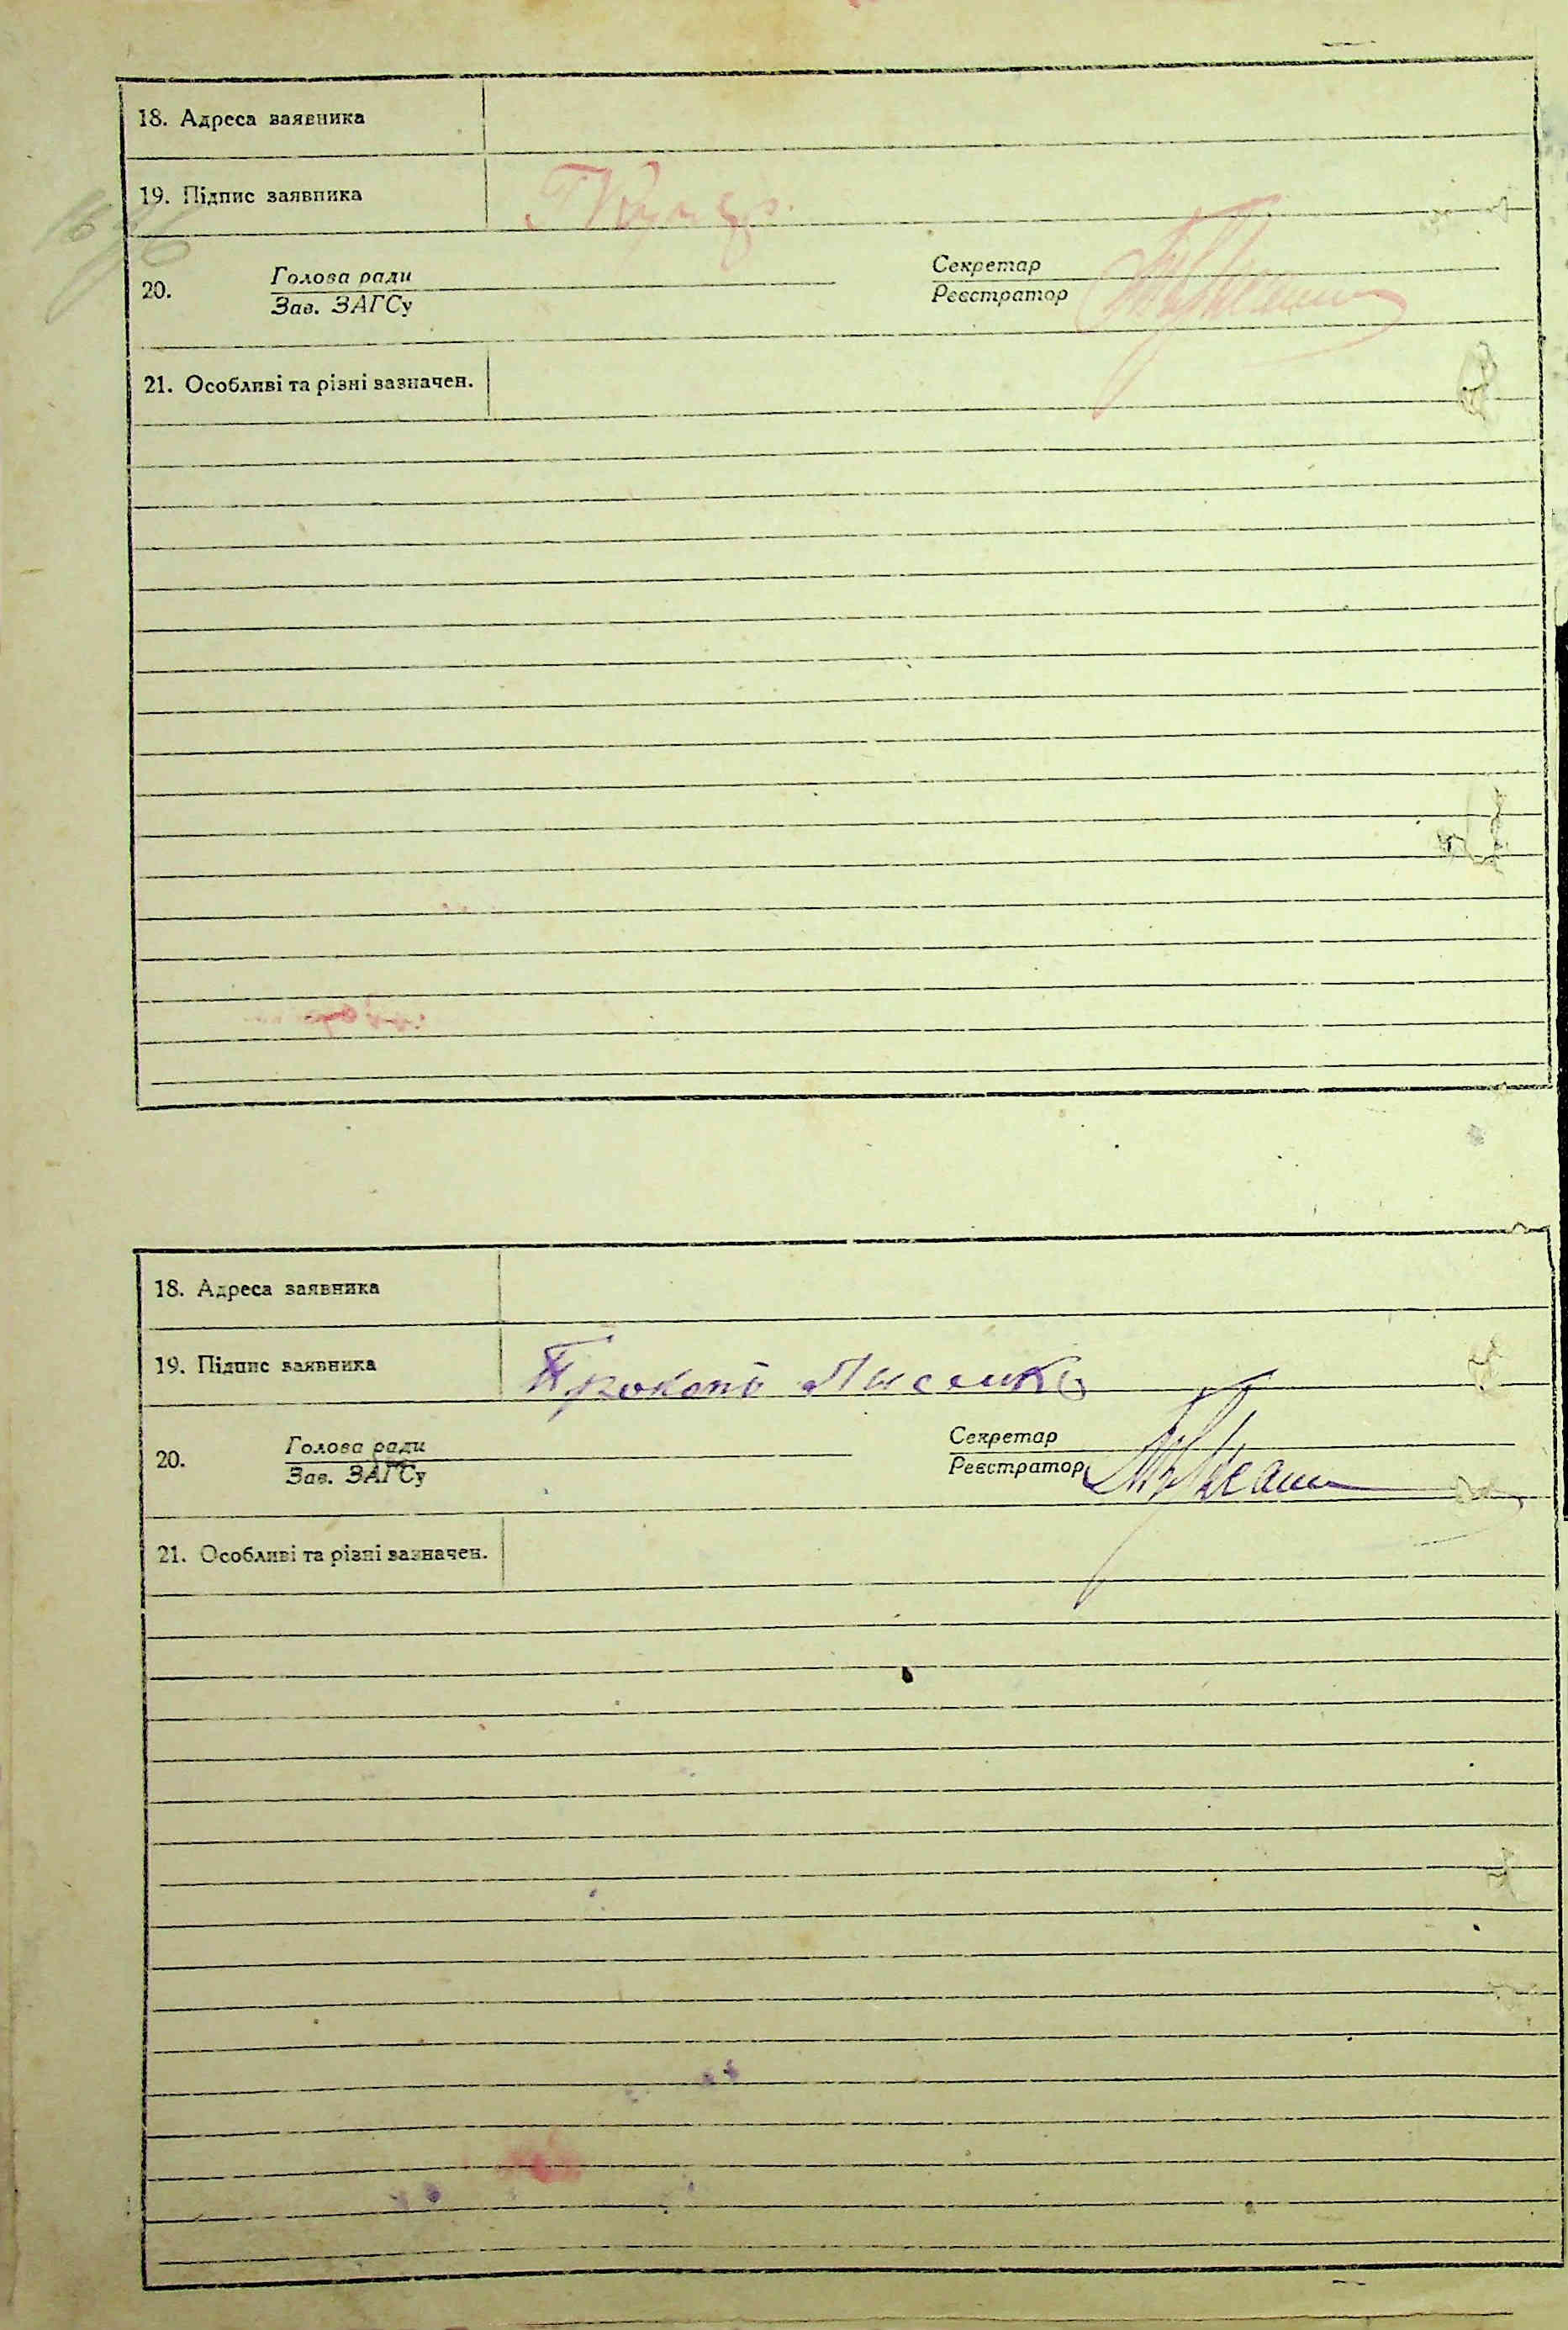 18. Адреса заявника
19. Підпис заявника
20. Голова ради Секретар
Зав. ЗАГСу Реєстратор
21. Особливі та різні зазначен.
18. Адреса заявника
19. Підпис заявника Прокоп
20. Голова ради Секретар
Зав. ЗАГСу Реєстратор
21. Особливі та різні зазначен.